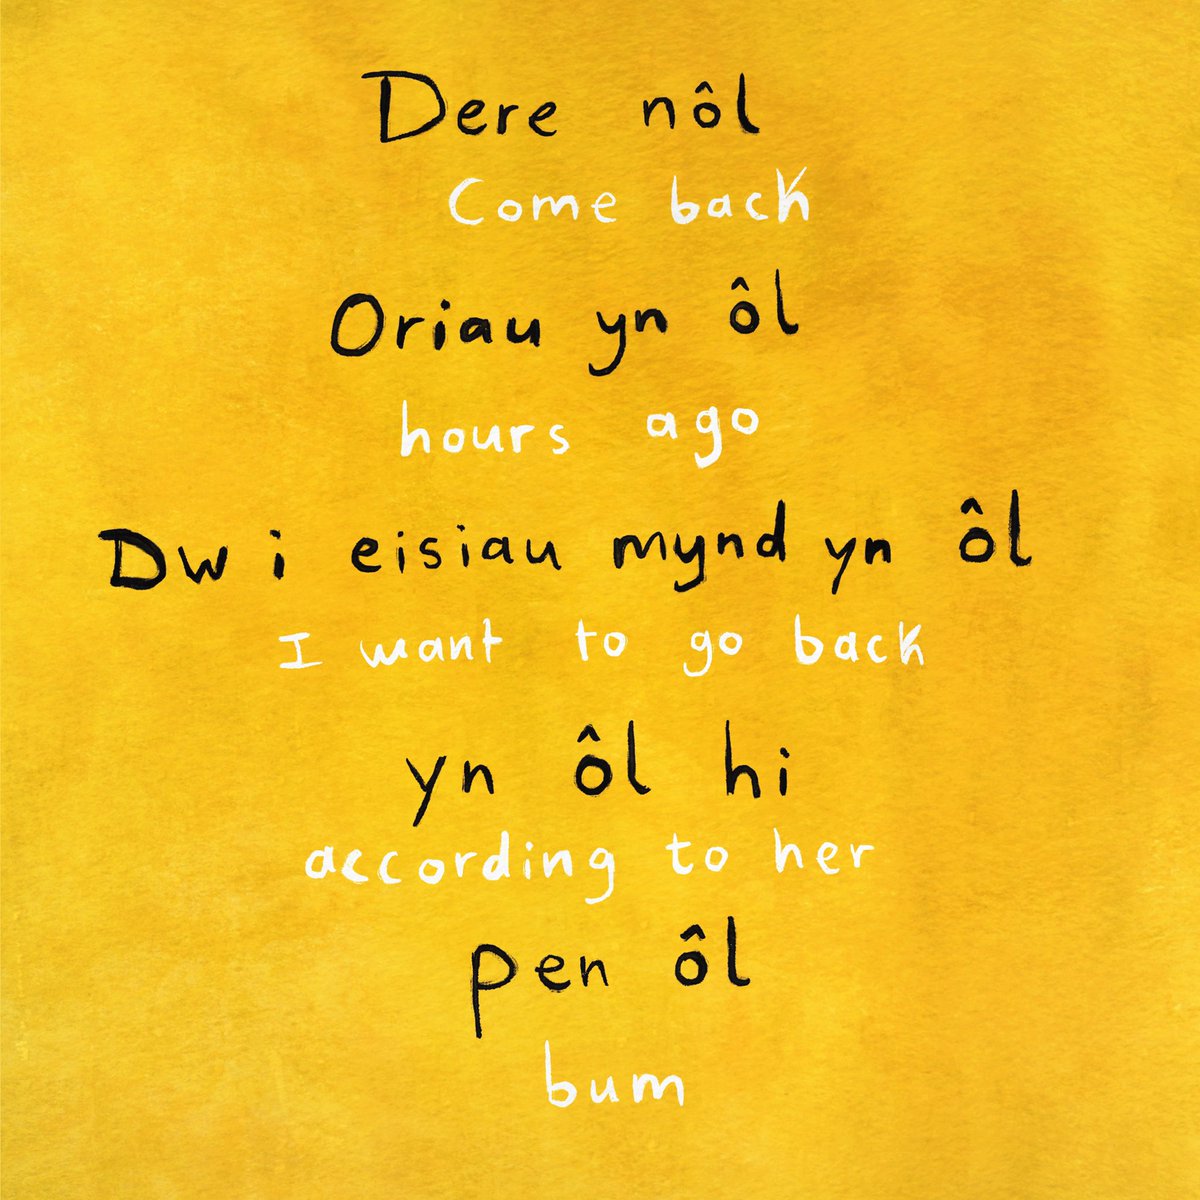 Dere nôl
Come back
Oriau yn ôl
hours ago
Dw i eisiau mynd yn ôl
I want to go back
yn ôl hi
according to her
pen ôl
bum